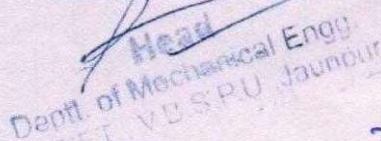 Head
Deptt. of Mechanical Engg.
V.B.S.P.U. Jaunpur